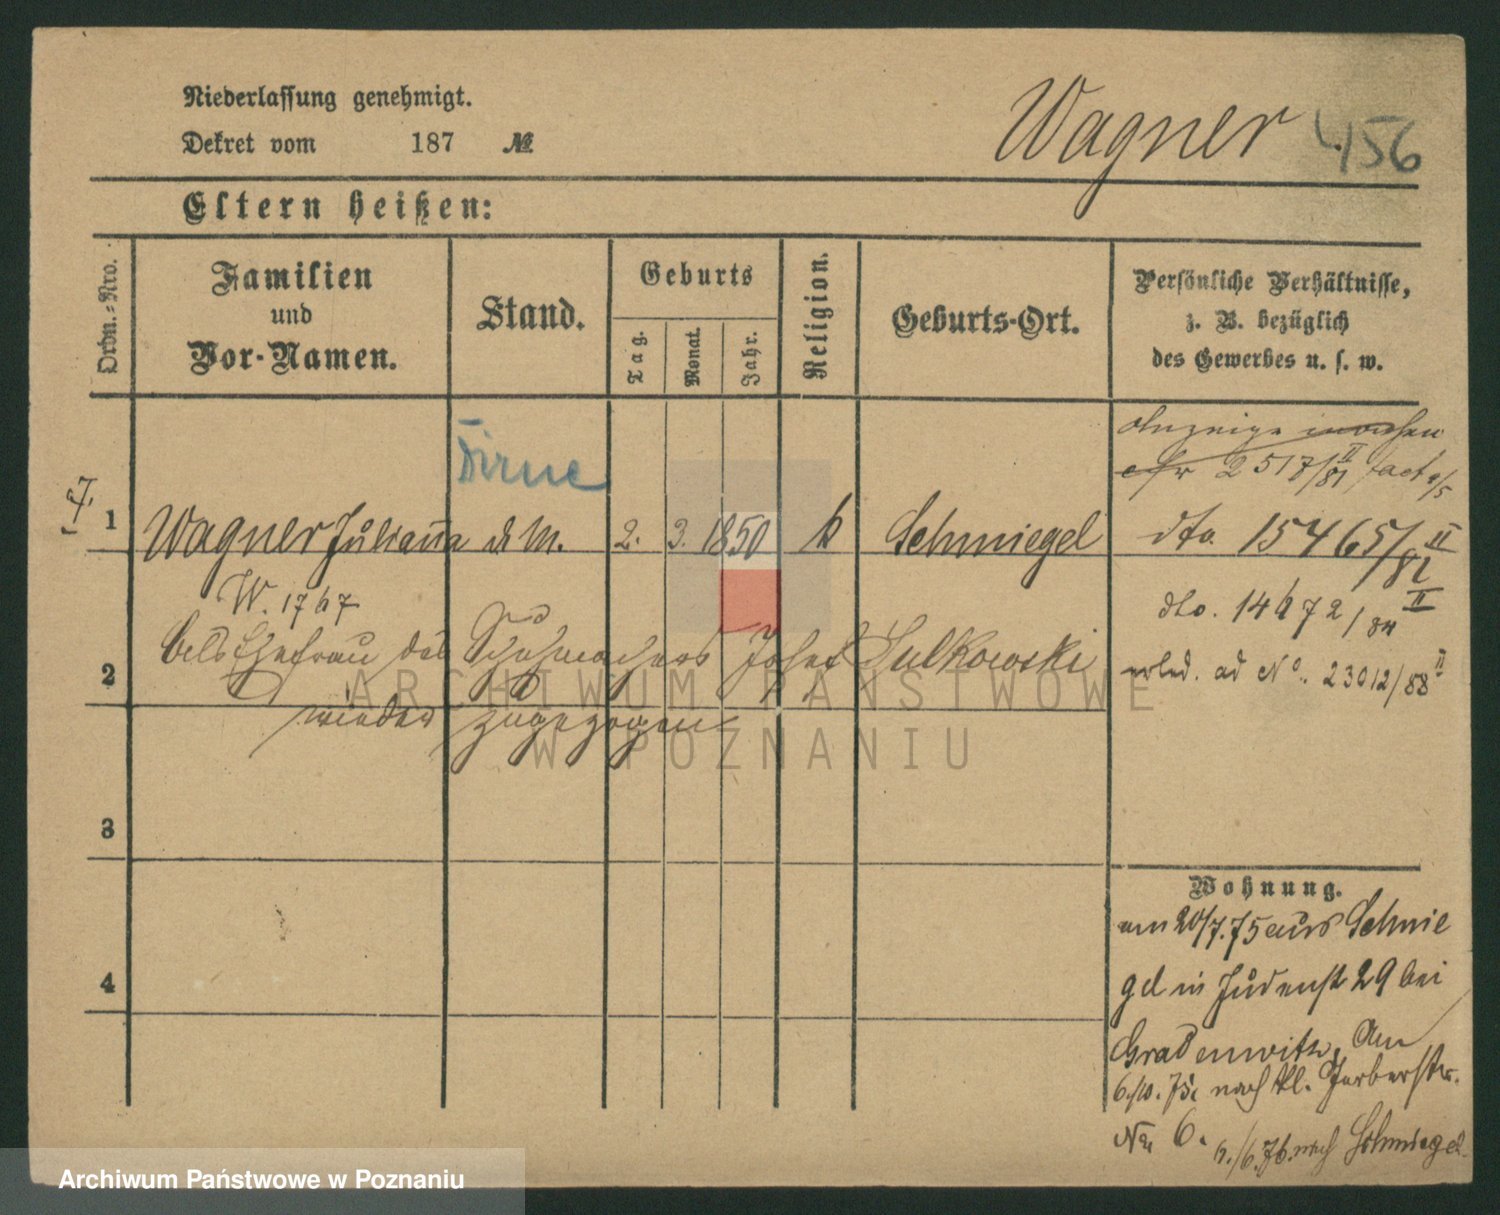 Niederlassung genehmigt.
Dekret vom 187 №
Wagner
156
Eltern heißen:
Ordn.-Nro.
Familien
und
Vor-Namen.
Stand.
Geburts
Tag.
Monat.
Jahr.
Religion.
Geburts-Ort.
Persönliche Verhältnisse,
z. B. bezüglich
des Gewerbes u. s. w.
Anzeige
2517/81 II
Dirne
1 Wagner Julianna d. M. 2. 3. 1850 k Schmiegel
dto. 15465/82 II
W. 1767
dto. 14672/84 II
2 als Ehefrau des Schuhmachers Josef Sulkowski
erled. ad No. 23012/88 II
wieder zugezogen
ARCHIWUM PAŃSTWOWE
W POZNANIU
3
4
Wohnung.
am 20/7.75 aus Schmie
gel in Judenstr 29 bei
Gradenwitz, Am
6/10.75 nach kl. Gerberstr.
No 6. 6./6.76. nach Schmiegel.
Archiwum Państwowe w Poznaniu